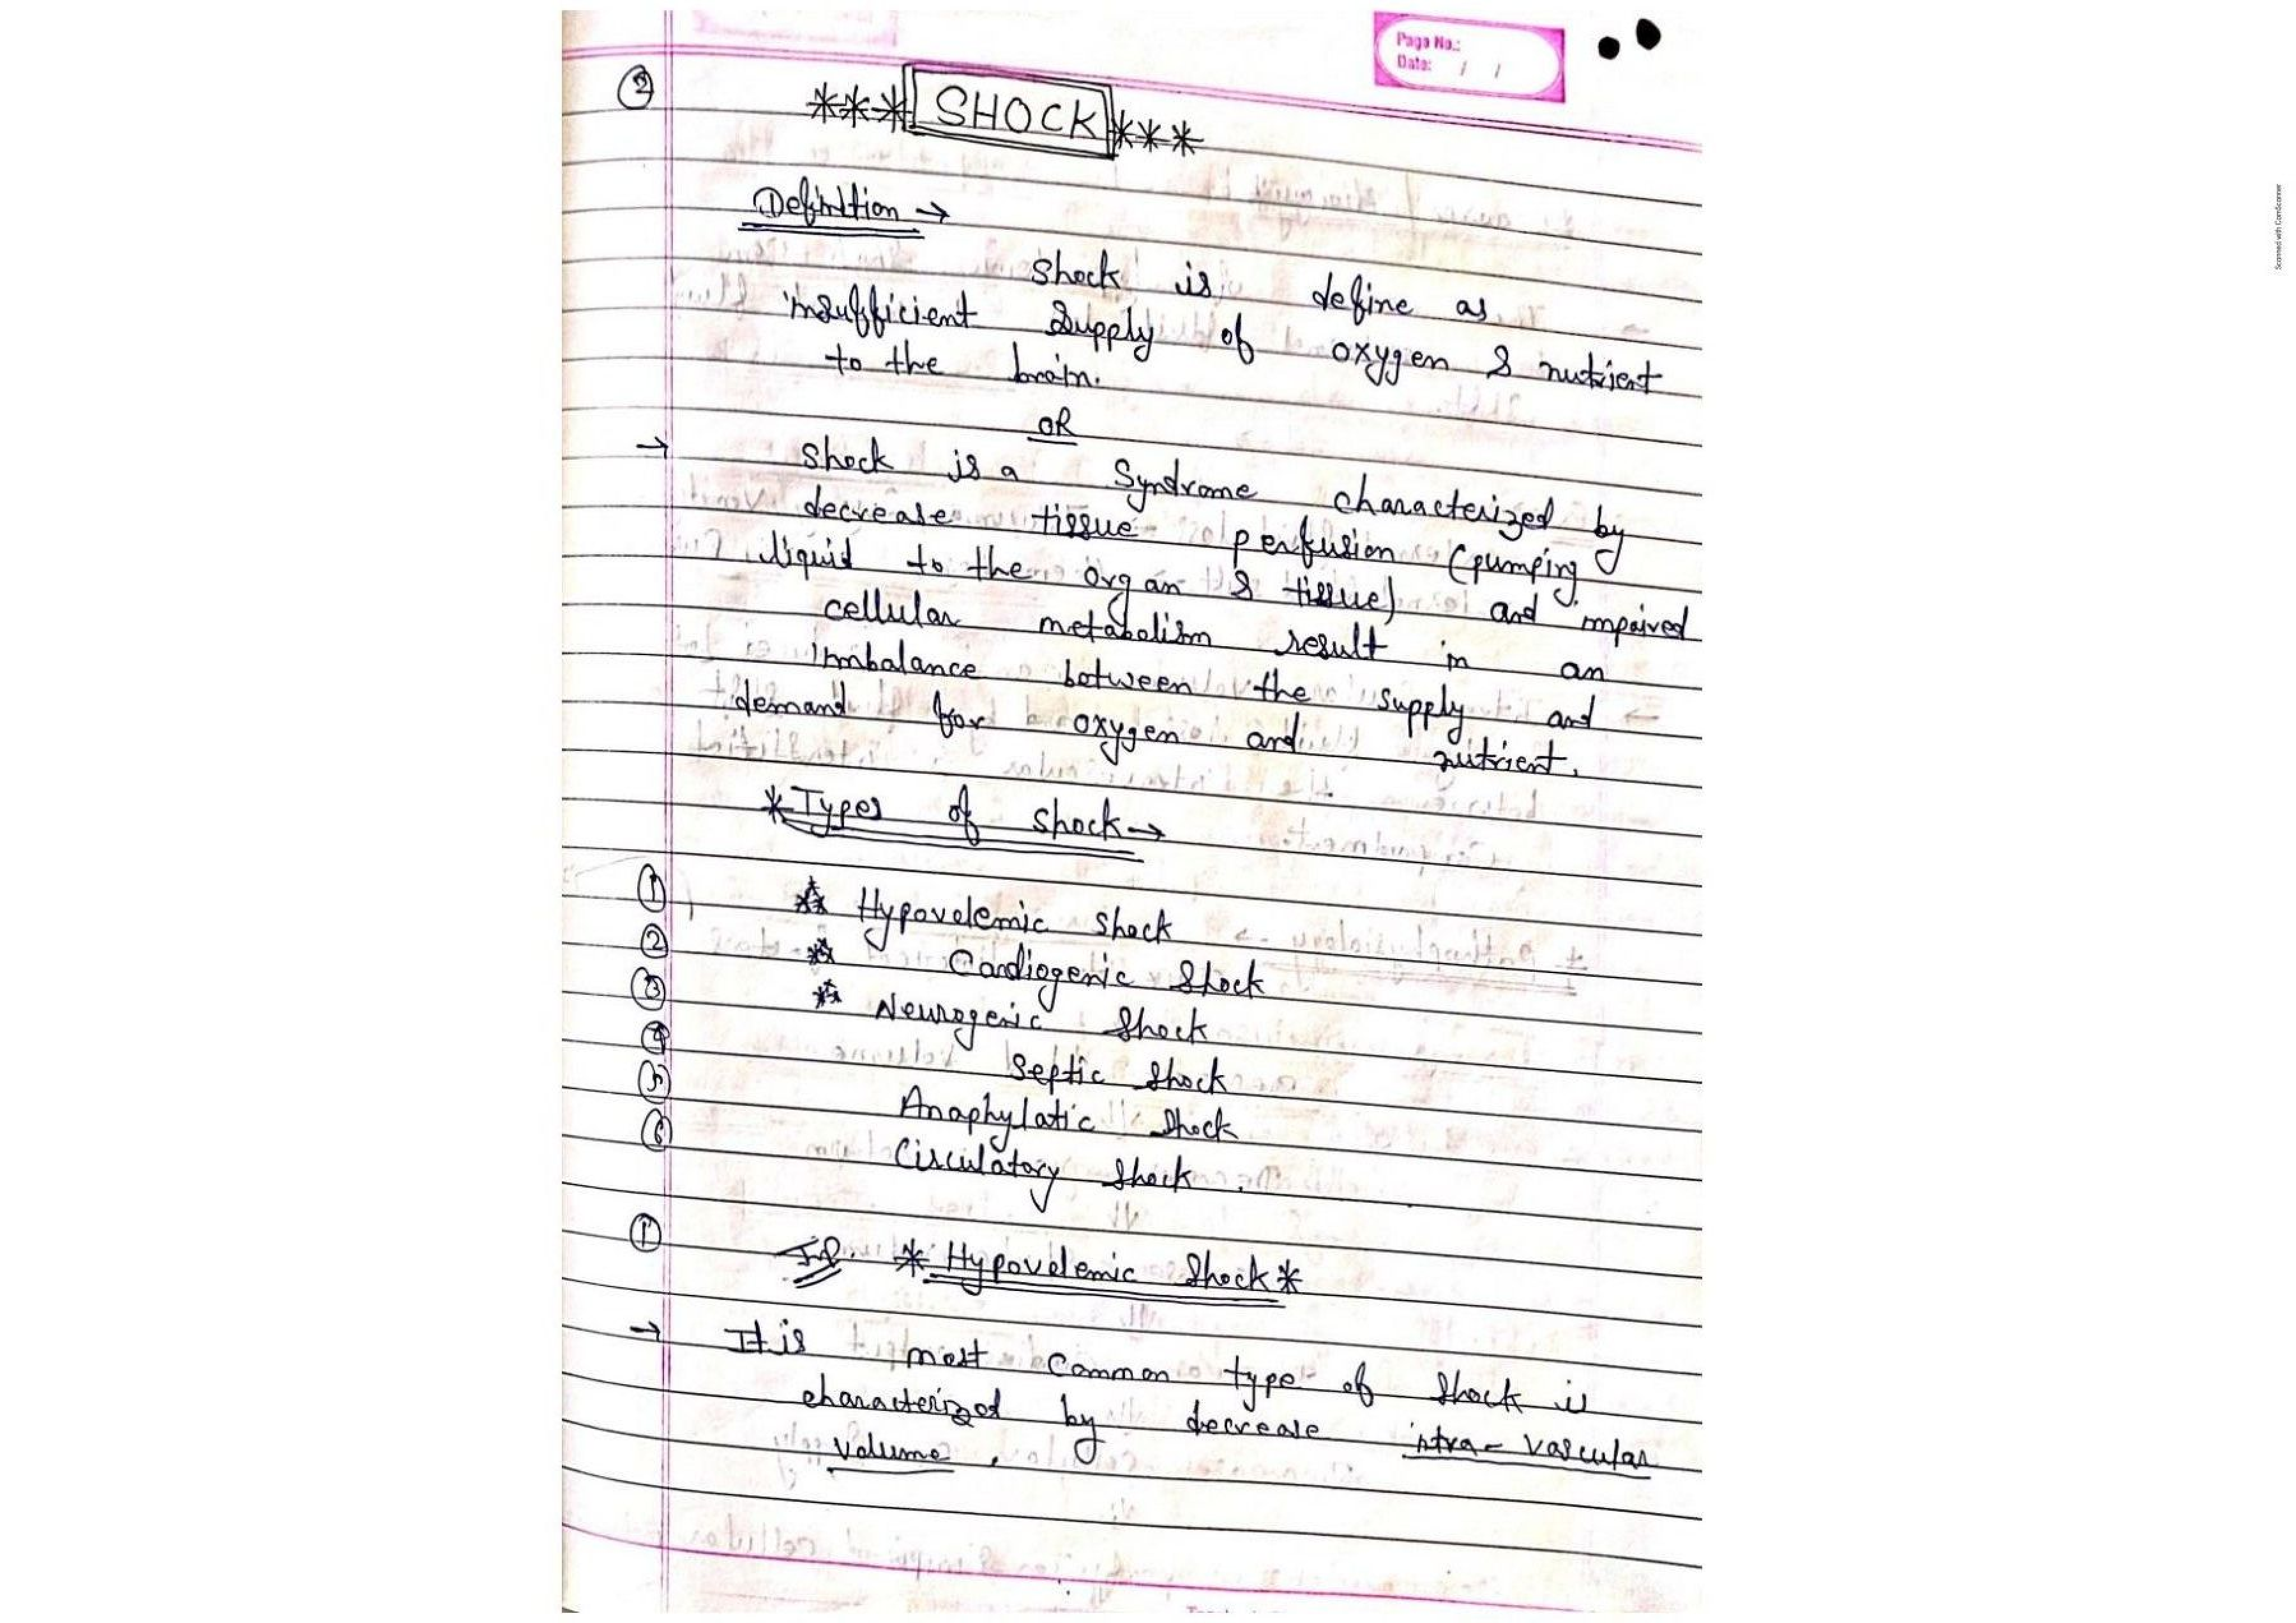 Page No.:
Date: / /
②
*** SHOCK ***
Definition →
Shock is define as
insufficient supply of oxygen & nutrient
to the brain.
OR
→ Shock is a Syndrome characterized by
decrease tissue perfusion (pumping
liquid to the organ & tissue) and impaired
cellular metabolism result in an
imbalance between the supply and
demand for oxygen and nutrient.
* Types of shock →
① Hypovolemic shock
② Cardiogenic Shock
③ Neurogenic Shock
④ Septic Shock
⑤ Anaphylatic Shock
⑥ Circulatory Shock.
① Imp. * Hypovolemic Shock *
→ It is most common type of Shock is
characterized by decrease intra-vascular
volume.
Scanned with CamScanner